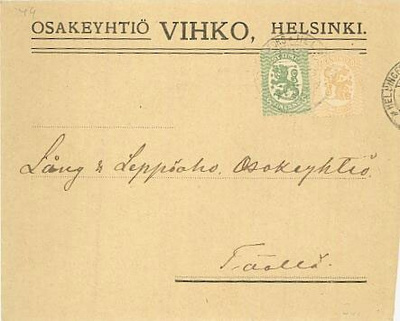 OSAKEYHTIÖ VIHKO, HELSINKI.
Lång & Leppäaho. Osakeyhtiö.
Täällä.